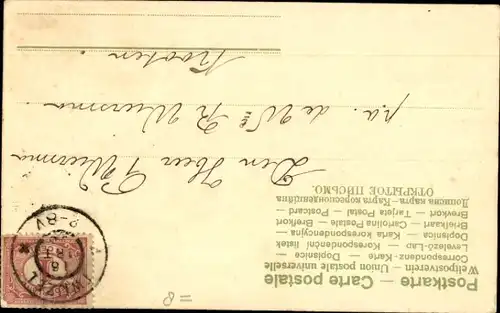 Postkarte — Carte postale
Weltpostverein — Union postale universelle
Correspondenz-Karte — Carte — Dopisnice —
Levelező-Lap — Korespondenční lístek
— Dopisnica — Karta korespondencyjna —
Briefkaart — Cartolina Postale — Brefkort
— Brevkort — Tarjeta Postal — Postcard —
Дописна карта — Карта корреспонденційна
ОТКРЫТОЕ ПИСЬМО.
Den Heer P Wiersma
p/a. de Wde R Wiersma
Kooten.
8-8V
18
= 8